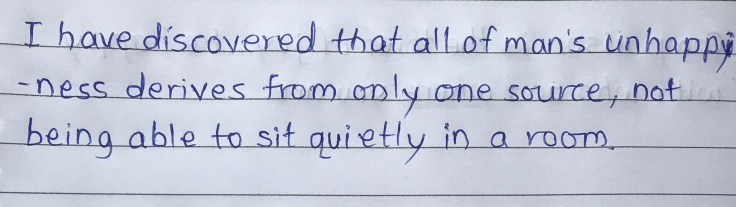 I have discovered that all of man's unhappy
-ness derives from only one source, not
being able to sit quietly in a room.